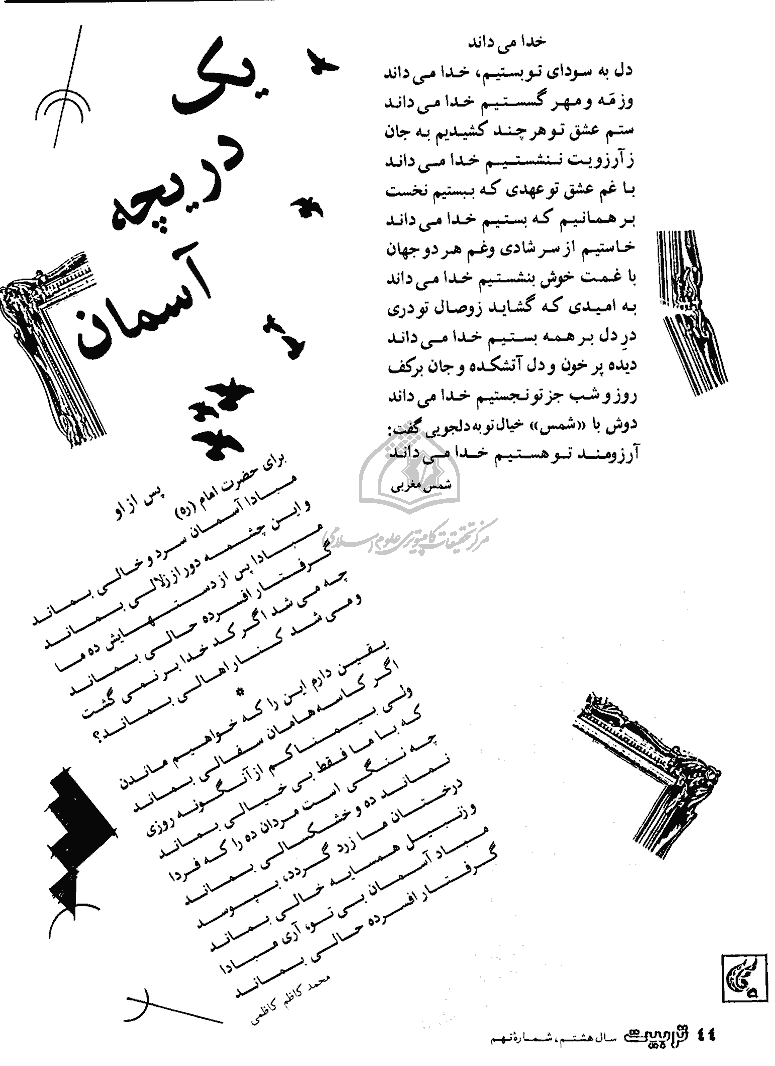 یک
دریچه
آسمان
خدا می داند
دل به سودای تو بستیم، خدا می داند
وز مَه و مهر گسستیم خدا می داند
ستم عشق تو هر چند کشیدیم به جان
ز آرزویت ننشستیم خدا می داند
با غم عشق تو عهدی که ببستیم نخست
بر همانیم که بستیم خدا می داند
خاستیم از سر شادی وغم هر دو جهان
با غمت خوش بنشستیم خدا می داند
به امیدی که گشاید زوصال تو دری
درِ دل بر همه بستیم خدا می داند
دیده پر خون و دل آتشکده و جان برکف
روز و شب جز تو نجستیم خدا می داند
دوش با «شمس» خیال تو به دلجویی گفت:
آرزومند تو هستیم خدا می داند
شمس مغربی
مرکز تحقیقات کامپیوتری علوم اسلامی
پس از او
برای حضرت امام (ره)
مبادا آسمان سرد و خالی بماند
و این چشمه دور از زلالی بماند
مبادا پس از دستهایش ده ما
گرفتار افسرده حالی بماند
چه می شد اگر کد خدا بر نمی گشت
و می شد کنار اهالی بماند؟
*
یقین دارم این را که خواهیم ماندن
اگر کاسه هامان سفالی بماند
ولی بیمناکم از آنگونه روزی
که با ما فقط بی خیالی بماند
چه ننگی است مردان ده را که فردا
نماند ده و خشکسالی بماند
درختان ما زرد گردد، بپوسد
و زنبیل همسایه خالی بماند
مباد آسمان بی تو، آری مبادا
گرفتار افسرده حالی بماند
محمد کاظم کاظمی
۴۴ تربیت سال هشتم، شمارۀ نهم